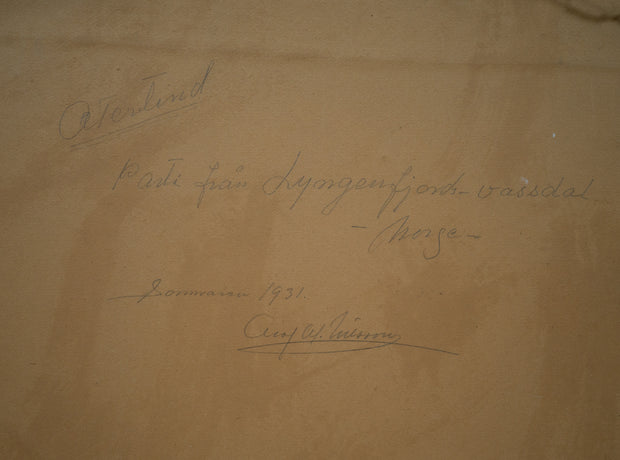 Oterlind
Parti från Lyngenfjord-vassdal
- Norge -
Sommaren 1931.